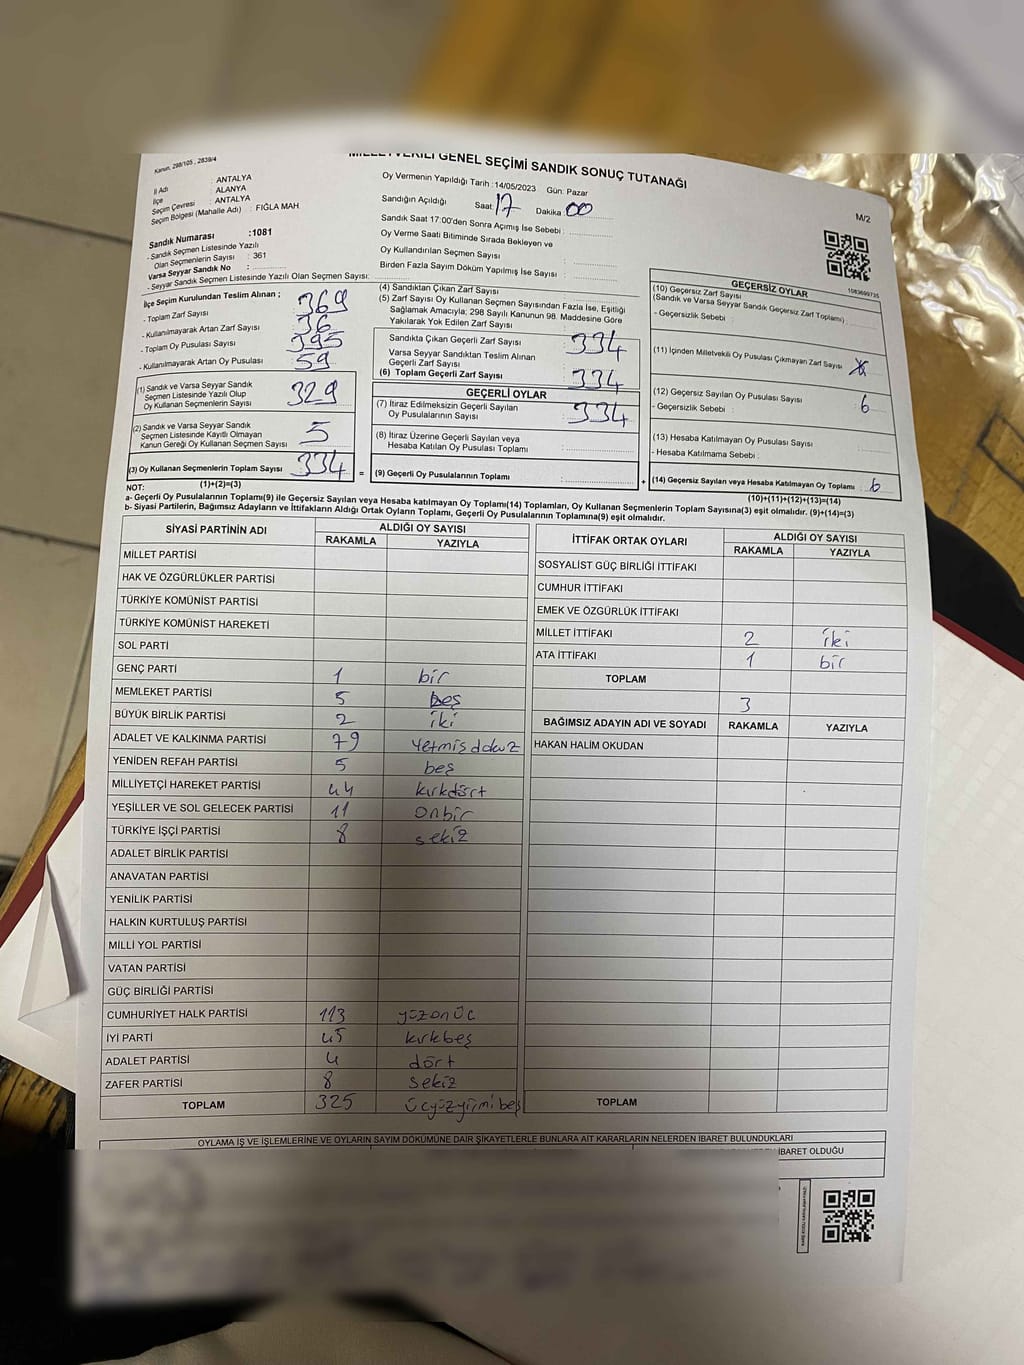 Kanun: 298/105 , 2839/4
MİLLETVEKİLİ GENEL SEÇİMİ SANDIK SONUÇ TUTANAĞI
M/2
İl Adı : ANTALYA
İlçe : ALANYA
Seçim Çevresi : ANTALYA
Seçim Bölgesi (Mahalle Adı) : FIĞLA MAH
Sandık Numarası :1081
- Sandık Seçmen Listesinde Yazılı
Olan Seçmenlerin Sayısı : 361
Varsa Seyyar Sandık No :
- Seyyar Sandık Seçmen Listesinde Yazılı Olan Seçmen Sayısı:
Oy Vermenin Yapıldığı Tarih :14/05/2023 Gün: Pazar
Sandığın Açıldığı Saat : 17 Dakika : 00
Sandık Saat 17:00'den Sonra Açımış İse Sebebi :
Oy Verme Saati Bitiminde Sırada Bekleyen ve
Oy Kullandırılan Seçmen Sayısı :
Birden Fazla Sayım Döküm Yapılmış İse Sayısı :
1083699735
İlçe Seçim Kurulundan Teslim Alınan ;
- Toplam Zarf Sayısı : 369
- Kullanılmayarak Artan Zarf Sayısı : 36
- Toplam Oy Pusulası Sayısı : 395
- Kullanılmayarak Artan Oy Pusulası : 59
(1) Sandık ve Varsa Seyyar Sandık
Seçmen Listesinde Yazılı Olup
Oy Kullanan Seçmenlerin Sayısı : 329
(2) Sandık ve Varsa Seyyar Sandık
Seçmen Listesinde Kayıtlı Olmayan
Kanun Gereği Oy Kullanan Seçmen Sayısı : 5
(3) Oy Kullanan Seçmenlerin Toplam Sayısı : 334
(1)+(2)=(3)
(4) Sandıktan Çıkan Zarf Sayısı
(5) Zarf Sayısı Oy Kullanan Seçmen Sayısından Fazla İse, Eşitliği
Sağlamak Amacıyla; 298 Sayılı Kanunun 98. Maddesine Göre
Yakılarak Yok Edilen Zarf Sayısı :
Sandıkta Çıkan Geçerli Zarf Sayısı : 334
Varsa Seyyar Sandıktan Teslim Alınan
Geçerli Zarf Sayısı :
(6) Toplam Geçerli Zarf Sayısı : 334
GEÇERLİ OYLAR
(7) İtiraz Edilmeksizin Geçerli Sayılan
Oy Pusulalarının Sayısı : 334
(8) İtiraz Üzerine Geçerli Sayılan veya
Hesaba Katılan Oy Pusulası Toplamı :
= (9) Geçerli Oy Pusulalarının Toplamı :
GEÇERSİZ OYLAR
(10) Geçersiz Zarf Sayısı
(Sandık ve Varsa Seyyar Sandık Geçersiz Zarf Toplamı) :
- Geçersizlik Sebebi :
(11) İçinden Milletvekili Oy Pusulası Çıkmayan Zarf Sayısı :
(12) Geçersiz Sayılan Oy Pusulası Sayısı : 6
- Geçersizlik Sebebi :
(13) Hesaba Katılmayan Oy Pusulası Sayısı :
- Hesaba Katılmama Sebebi :
+ (14) Geçersiz Sayılan veya Hesaba Katılmayan Oy Toplamı : 6
(10)+(11)+(12)+(13)=(14)
NOT:
a- Geçerli Oy Pusulalarının Toplamı(9) ile Geçersiz Sayılan veya Hesaba katılmayan Oy Toplamı(14) Toplamları, Oy Kullanan Seçmenlerin Toplam Sayısına(3) eşit olmalıdır. (9)+(14)=(3)
b- Siyasi Partilerin, Bağımsız Adayların ve İttifakların Aldığı Ortak Oyların Toplamı, Geçerli Oy Pusulalarının Toplamına(9) eşit olmalıdır.
SİYASİ PARTİNİN ADI ALDIĞI OY SAYISI
RAKAMLA YAZIYLA
MİLLET PARTİSİ
HAK VE ÖZGÜRLÜKLER PARTİSİ
TÜRKİYE KOMÜNİST PARTİSİ
TÜRKİYE KOMÜNİST HAREKETİ
SOL PARTİ
GENÇ PARTİ 1 bir
MEMLEKET PARTİSİ 5 beş
BÜYÜK BİRLİK PARTİSİ 2 iki
ADALET VE KALKINMA PARTİSİ 79 yetmiş dokuz
YENİDEN REFAH PARTİSİ 5 beş
MİLLİYETÇİ HAREKET PARTİSİ 44 kırkdört
YEŞİLLER VE SOL GELECEK PARTİSİ 11 onbir
TÜRKİYE İŞÇİ PARTİSİ 8 sekiz
ADALET BİRLİK PARTİSİ
ANAVATAN PARTİSİ
YENİLİK PARTİSİ
HALKIN KURTULUŞ PARTİSİ
MİLLİ YOL PARTİSİ
VATAN PARTİSİ
GÜÇ BİRLİĞİ PARTİSİ
CUMHURİYET HALK PARTİSİ 113 yüzonüç
İYİ PARTİ 45 kırkbeş
ADALET PARTİSİ 4 dört
ZAFER PARTİSİ 8 sekiz
TOPLAM 325 üçyüzyirmibeş
İTTİFAK ORTAK OYLARI ALDIĞI OY SAYISI
RAKAMLA YAZIYLA
SOSYALİST GÜÇ BİRLİĞİ İTTİFAKI
CUMHUR İTTİFAKI
EMEK VE ÖZGÜRLÜK İTTİFAKI
MİLLET İTTİFAKI 2 iki
ATA İTTİFAKI 1 bir
TOPLAM
3
BAĞIMSIZ ADAYIN ADI VE SOYADI RAKAMLA YAZIYLA
HAKAN HALİM OKUDAN
TOPLAM
OYLAMA İŞ VE İŞLEMLERİNE VE OYLARIN SAYIM DÖKÜMÜNE DAİR ŞİKAYETLERLE BUNLARA AİT KARARLARIN NELERDEN İBARET BULUNDUKLARI
İBARET OLDUĞU